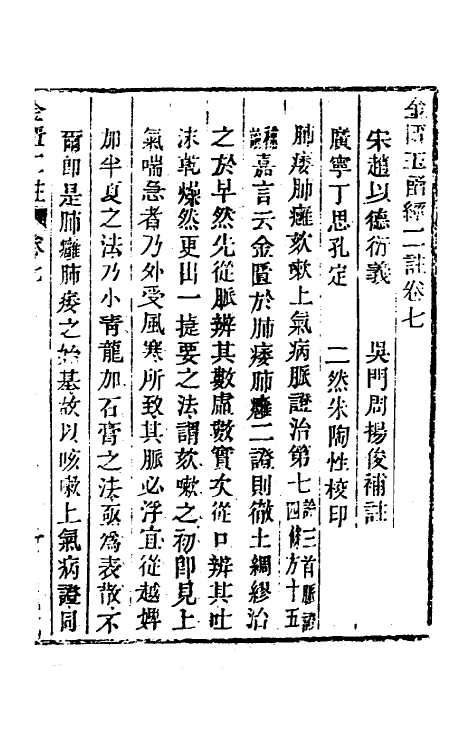 金匱玉函經二註卷七
宋趙以德衍義　吳門周揚俊補註
廣寧丁思孔定　二然朱陶性校印
肺痿肺癰欬嗽上氣病脈證治第七論三首脈證四條方十五
嘉言云金匱於肺痿肺癰二證則徹土綢繆治
之於早然先從脈辨其數虛數實次從口辨其吐
沫乾燥然更出一提要之法謂欬嗽之初即見上
氣喘急者乃外受風寒所致其脈必浮宜從越婢
加半夏之法乃小青龍加石膏之法亟為表散不
爾即是肺癰肺痿之始基故以咳嗽上氣病證同
金匱二註　卷七